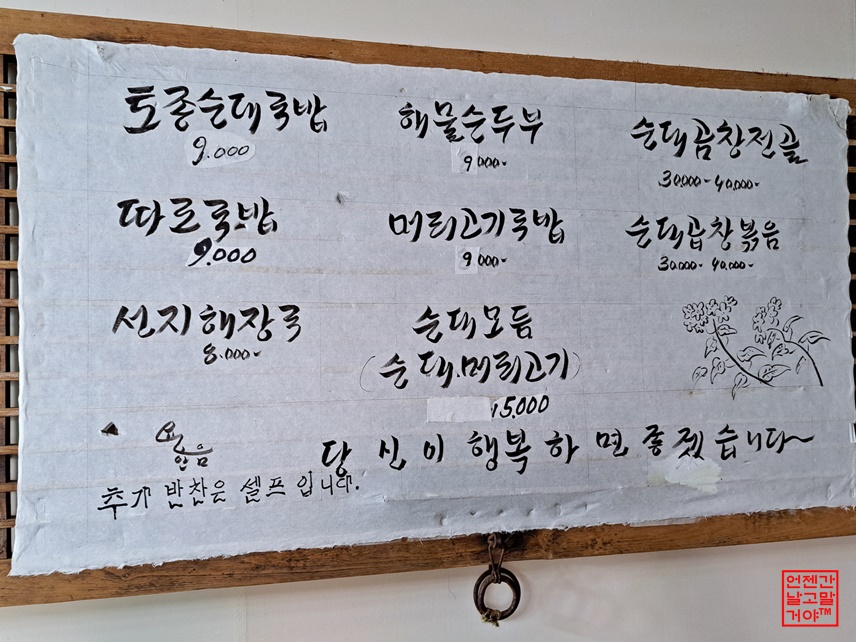 토종순대국밥
9.000
해물순두부
9000-
순대곱창전골
30.000- 40.000-
따로국밥
9.000
머리고기국밥
9000-
순대곱창볶음
30.000- 40.000-
선지해장국
8.000-
순대모듬
(순대.머리고기)
15.000
당신이 행복하면 좋겠습니다~
추가 반찬은 셀프 입니다.
언젠간
날고말
거야™